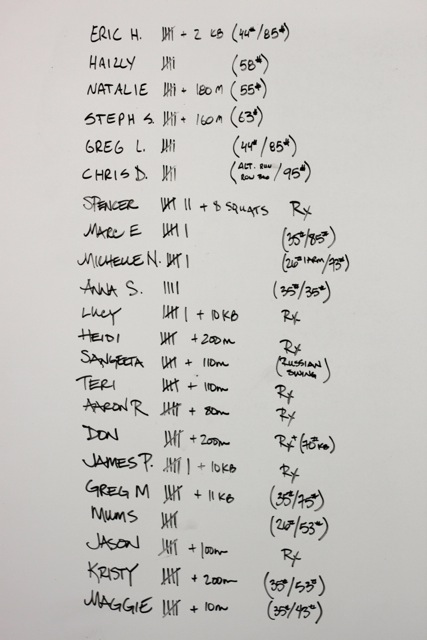 ERIC H. 卌 + 2 KB (44#/85#)
HAILLY 卌 (58#)
NATALIE 卌 + 180M (55#)
STEPH S. 卌 + 160M (63#)
GREG L. 卌 (44#/85#)
CHRIS D. 卌 (ALT. RUN ROW /95#)
SPENCER 卌 II + 8 SQUATS Rx
MARC E 卌 I (35#/85#)
MICHELLE N. 卌 I (26# 1 ARM/73#)
ANNA S. IIII (35#/35#)
LUCY 卌 I + 10 KB Rx
HEIDI 卌 + 200m Rx
SANGEETA 卌 + 110m (RUSSIAN SWING)
TERI 卌 + 110m Rx
AARON R 卌 + 80m Rx
DON 卌 + 200m Rx+ (70# KB)
JAMES P. 卌 I + 10 KB Rx
GREG M 卌 + 11 KB (35#/75#)
MUMS 卌 (26#/53#)
JASON 卌 + 100m Rx
KRISTY 卌 + 200m (35#/53#)
MAGGIE 卌 + 10m (35#/43#)